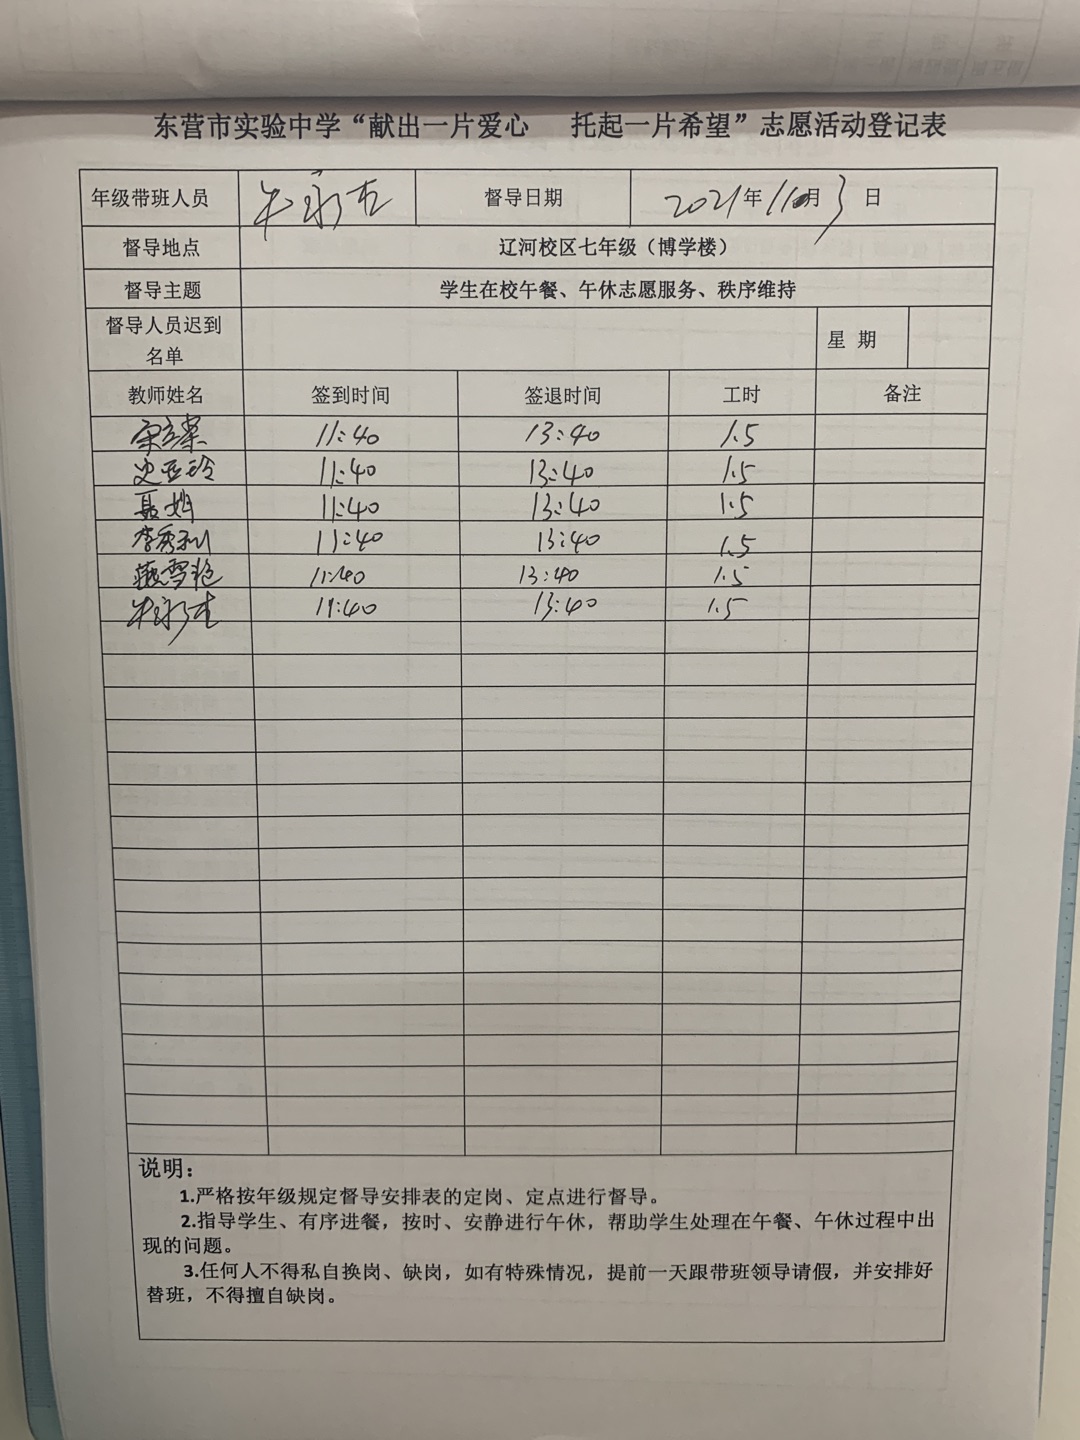 东营市实验中学“献出一片爱心 托起一片希望”志愿活动登记表
年级带班人员 牛永杰 督导日期 2021年11月3日
督导地点 辽河校区七年级（博学楼）
督导主题 学生在校午餐、午休志愿服务、秩序维持
督导人员迟到名单 星 期
教师姓名 签到时间 签退时间 工时 备注
11:40 13:40 1.5
史亚玲 11:40 13:40 1.5
聂娟 11:40 13:40 1.5
李秀利 11:40 13:40 1.5
薇雪艳 11:40 13:40 1.5
牛永杰 11:40 13:40 1.5
说明：
1.严格按年级规定督导安排表的定岗、定点进行督导。
2.指导学生、有序进餐，按时、安静进行午休，帮助学生处理在午餐、午休过程中出
现的问题。
3.任何人不得私自换岗、缺岗，如有特殊情况，提前一天跟带班领导请假，并安排好
替班，不得擅自缺岗。